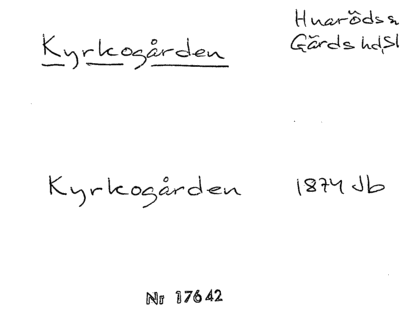 Kyrkogården
Hnaröds s
Gärds hd, Sk
Kyrkogården
1874 Jb
Nr 17642